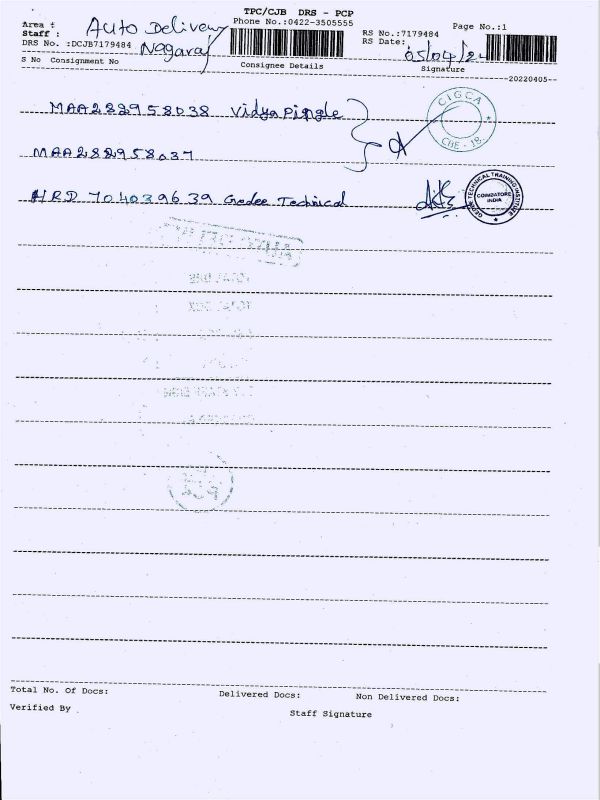 TPC/CJB DRS - PCP
Area : Auto Delivery Phone No.:0422-3505555 Page No.:1
Staff : Nagaraj RS No.:7179484
DRS No. :DCJB7179484 RS Date: 05/04/22
S No Consignment No Consignee Details Signature
20220405
MAA282958038 Vidya Pingle
CIGCA
CHE - 18
MAA282958037
HRD 704039639 Gedee Technical
GEDEE TECHNICAL TRAINING INSTITUTE
COIMBATORE
INDIA
Total No. Of Docs: Delivered Docs: Non Delivered Docs:
Verified By Staff Signature